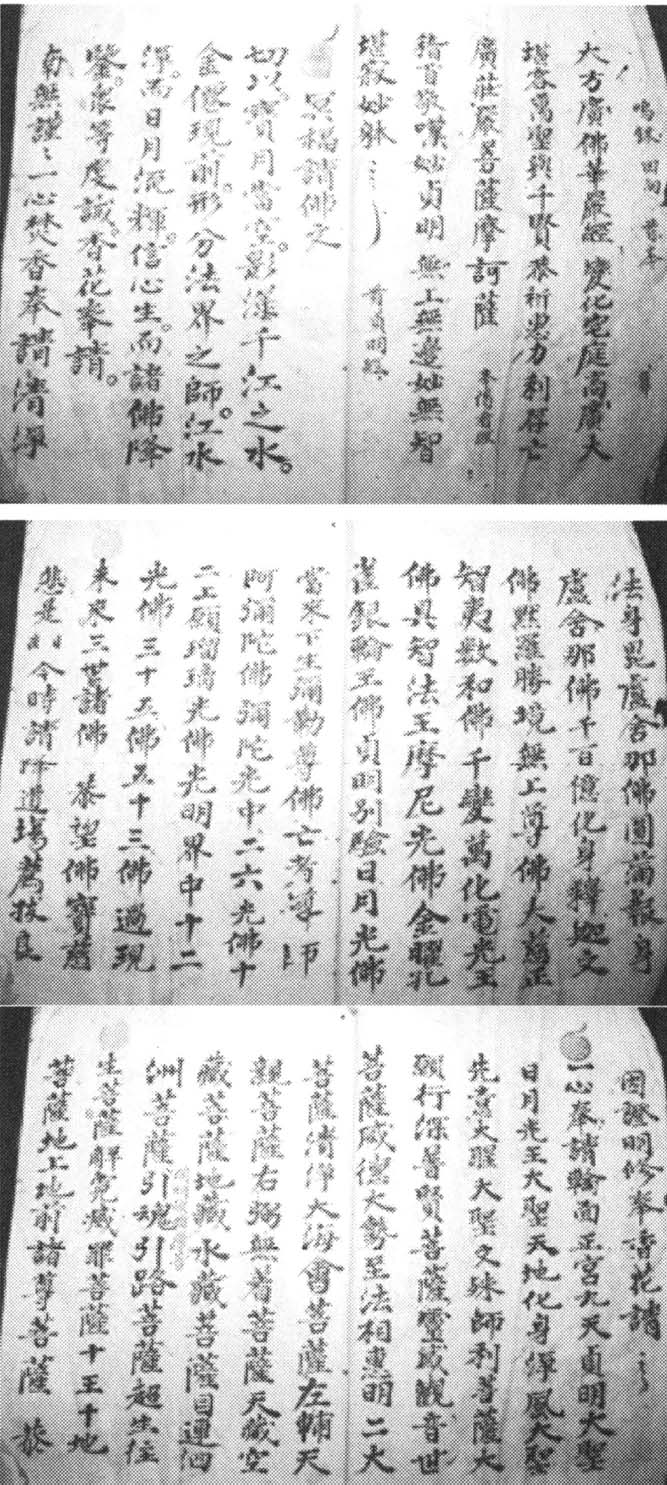 鳴鈸 田間 首本
大方廣佛華嚴經 變化宅庭高廣大
堪容萬聖與千賢 恭祈惠力利存亡
廣莊嚴菩薩摩訶薩
稽首敬嘆妙貞明 無上無邊妙無智
堪寂妙躰
冥福請佛文
切以。寶月當空。影深千江之水。
金僊現前。形分法界之師。江水
渾。而日月沉輝。信心生。而諸佛降
鑒。眾等虔誠。香花奉請。
一心焚香奉請清淨
法身毘盧舍那佛圓滿報身
盧舍那佛千百億化身釋迦文
佛默羅勝境無上尊佛大慈正
智夷數和佛千變萬化電光王
佛具智法王摩尼光佛金曜孔
雀銀輪王佛貞明別驗日月光佛
當來下生彌勒尊佛亡者導師
阿彌陀佛彌陀光中二六光佛十
二上願瑠璃光佛光明界中十二
光佛 三十五佛五十三佛過現
未來三世諸佛 恭望佛寶慈
悲是日今時請降道場薦拔良
因證明修奉香花請
一心奉請翰面正宮九天貞明大聖
日月光王大聖天地化身淨風大聖
先意大聖大聖文殊師利菩薩大
願行深普賢菩薩靈感觀音世
菩薩威德大勢至法相惠明二大
菩薩清淨大海會菩薩左輔天
親菩薩右弼無着菩薩天藏空
藏菩薩地藏水藏菩薩目連泗
洲菩薩引魂引路菩薩超生住
生菩薩解冤滅罪菩薩十王十地
菩薩地上地前諸尊菩薩